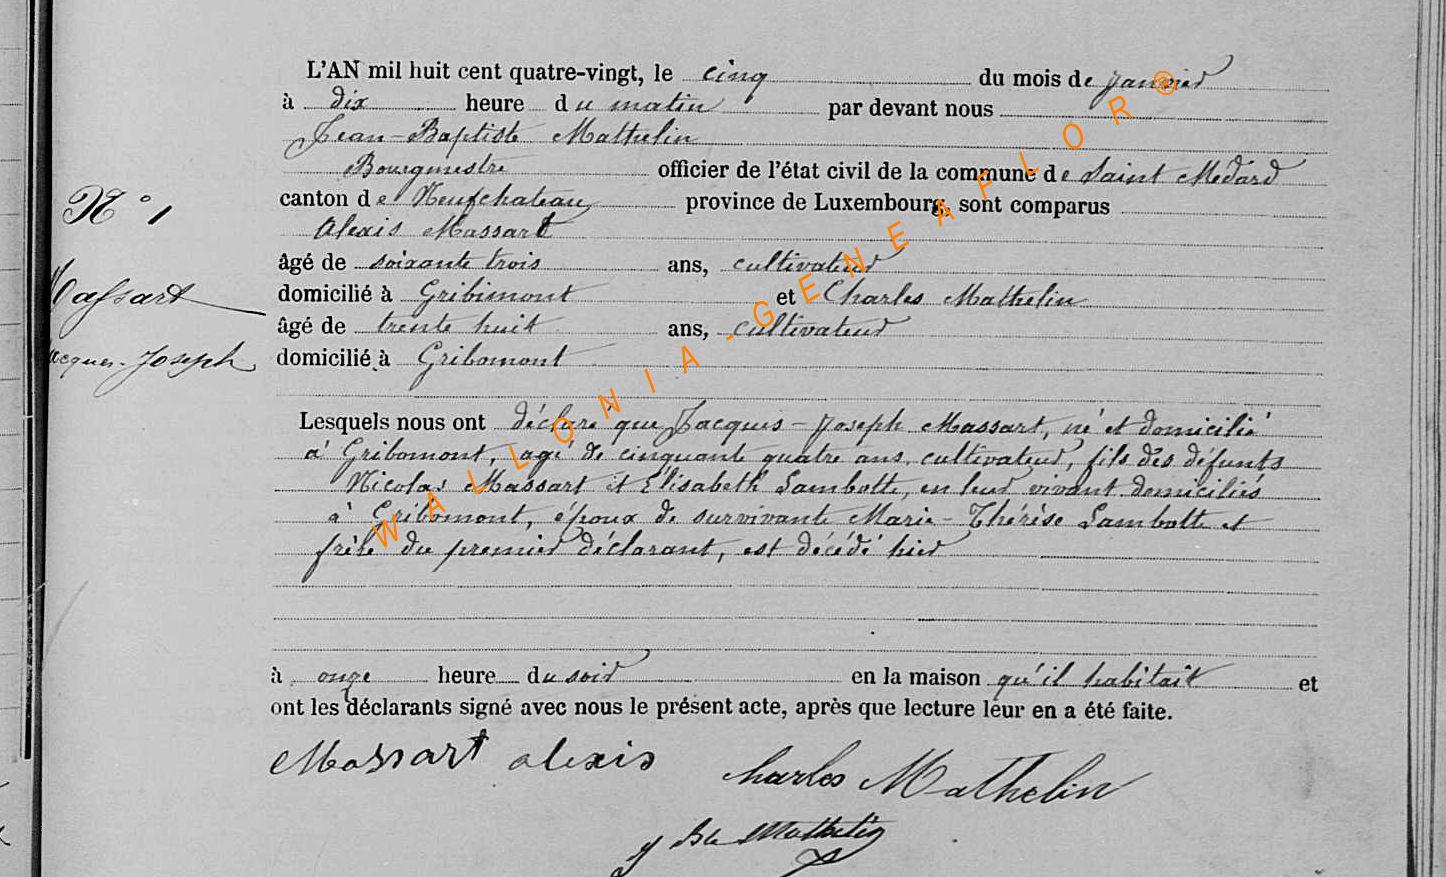 L'AN mil huit cent quatre-vingt, le cinq du mois de janvier
à dix heure du matin par devant nous
Jean-Baptiste Mathelin
Bourgmestre officier de l'état civil de la commune de Saint Médard
canton de Neufchateau province de Luxembourg, sont comparus
Alexis Massart
âgé de soixante trois ans, cultivateur
domicilié à Gribimont et Charles Mathelin
âgé de trente huit ans, cultivateur
domicilié à Gribomont
Lesquels nous ont déclaré que Jacques-Joseph Massart, né et domicilié
à Gribomont, agé de cinquante quatre ans, cultivateur, fils des défunts
Nicolas Massart et Elisabeth Lambotte, en leur vivant domiciliés
à Gribomont, époux de survivante Marie-Thérèse Lambotte et
frère du premier déclarant, est décédé hier
à onze heure du soir en la maison qu'il habitait et
ont les déclarants signé avec nous le présent acte, après que lecture leur en a été faite.
Massart alexis Charles Mathelin
J Bte Mathelin
N° 1
Massart
Jacques-Joseph
WALLONIA-GENEAFLOR®